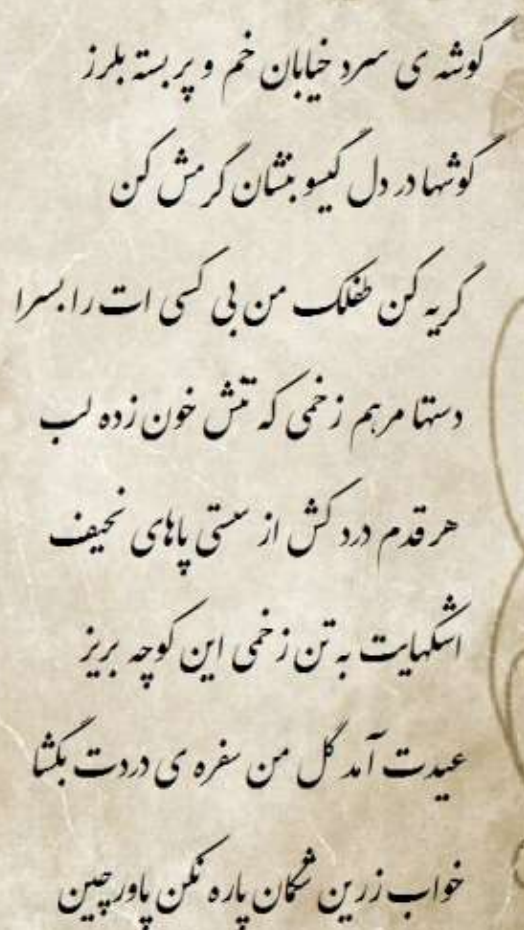 گوشه ی سرد خیابان خم و پر بسته بلرز
گوشها در دل گیسو بنشان گرمش کن
گریه کن طفلک من بی کسی ات را بسرا
دستها مرهم زخمی که تنش خون زده لب
هر قدم درد کش از سستی پاهای نحیف
اشکهایت به تن زخمی این کوچه بریز
عیدت آمد گل من سفره ی دردت بگشا
خواب زرین شگان پاره نکن پاورچین